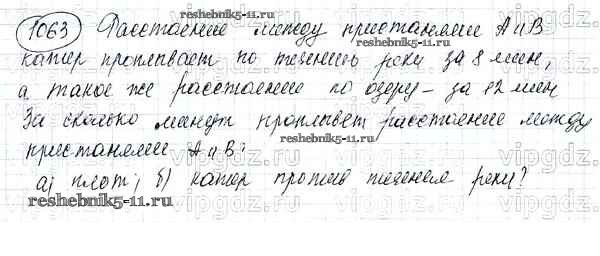 1063 Расстояние между пристанями А и В
reshebnik5-11.ru
катер проплывает по течению реки за 8 мин,
а такое же расстояние по озеру – за 12 мин
За сколько минут проплывет расстояние между
reshebnik5-11.ru
пристанями А и В:
а) плот; б) катер против течения реки?
reshebnik5-11.ru
vipgdz.